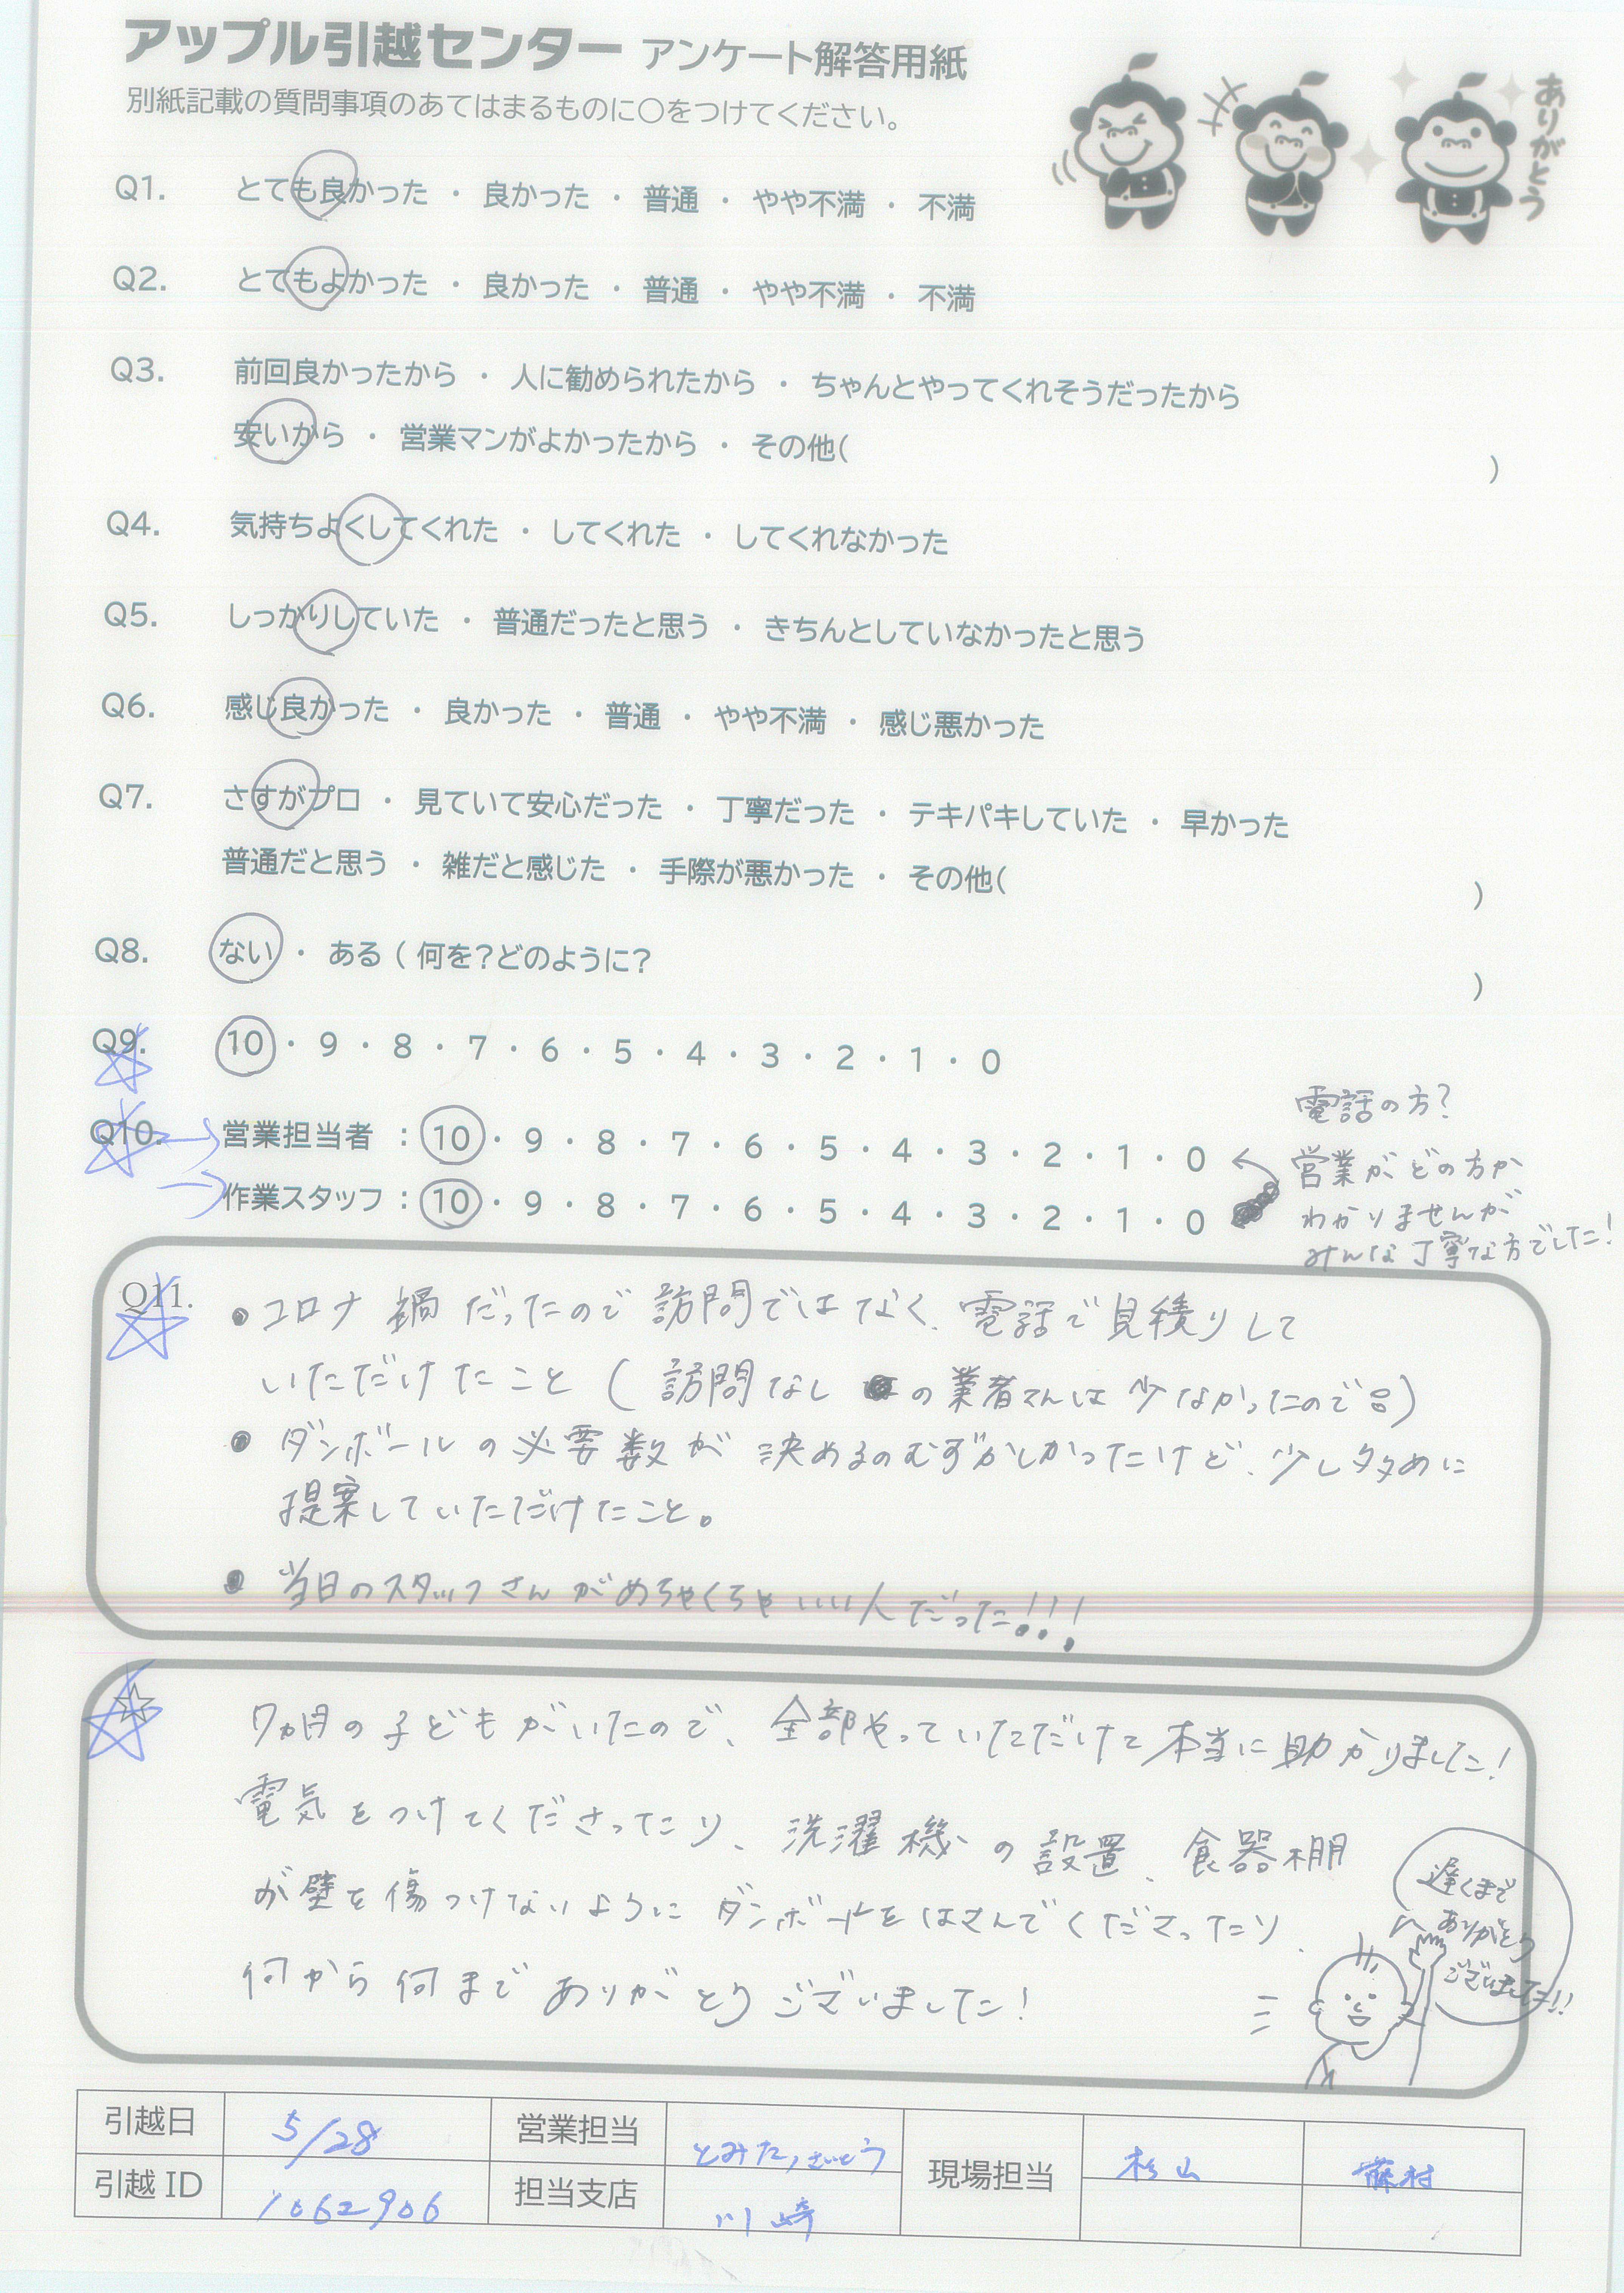 アップル引越センター アンケート解答用紙
別紙記載の質問事項のあてはまるものに〇をつけてください。
ありがとう
Q1. とても良かった ・ 良かった ・ 普通 ・ やや不満 ・ 不満
Q2. とてもよかった ・ 良かった ・ 普通 ・ やや不満 ・ 不満
Q3. 前回良かったから ・ 人に勧められたから ・ ちゃんとやってくれそうだったから
安いから ・ 営業マンがよかったから ・ その他( )
Q4. 気持ちよくしてくれた ・ してくれた ・ してくれなかった
Q5. しっかりしていた ・ 普通だったと思う ・ きちんとしていなかったと思う
Q6. 感じ良かった ・ 良かった ・ 普通 ・ やや不満 ・ 感じ悪かった
Q7. さすがプロ ・ 見ていて安心だった ・ 丁寧だった ・ テキパキしていた ・ 早かった
普通だと思う ・ 雑だと感じた ・ 手際が悪かった ・ その他( )
Q8. ない ・ ある ( 何を?どのように? )
Q9. 10 ・ 9 ・ 8 ・ 7 ・ 6 ・ 5 ・ 4 ・ 3 ・ 2 ・ 1 ・ 0
Q10. 営業担当者 : 10 ・ 9 ・ 8 ・ 7 ・ 6 ・ 5 ・ 4 ・ 3 ・ 2 ・ 1 ・ 0
作業スタッフ : 10 ・ 9 ・ 8 ・ 7 ・ 6 ・ 5 ・ 4 ・ 3 ・ 2 ・ 1 ・ 0
電話の方?
営業がどの方か
わかりませんが
みんな丁寧な方でした!
Q11.
・コロナ禍だったので訪問ではなく、電話で見積りして
いただけたこと (訪問なしの業者さんは少なかったので。)
・ダンボールの必要数が決めるのむずかしかったけど、少し多めに
提案していただけたこと。
・当日のスタッフさんがめちゃくちゃいい人だった!!!
☆
7ヵ月の子どもがいたので、全部やっていただけて本当に助かりました!
電気をつけてくださったり、洗濯機の設置、食器棚
が壁を傷つけないようにダンボールをはさんでくださったり、
何から何までありがとうございました!
遅くまで
ありがとう
ございました!!
引越日 5/28 営業担当 とみた,さいとう 現場担当 杉山 藤村
引越ID 1062906 担当支店 川崎